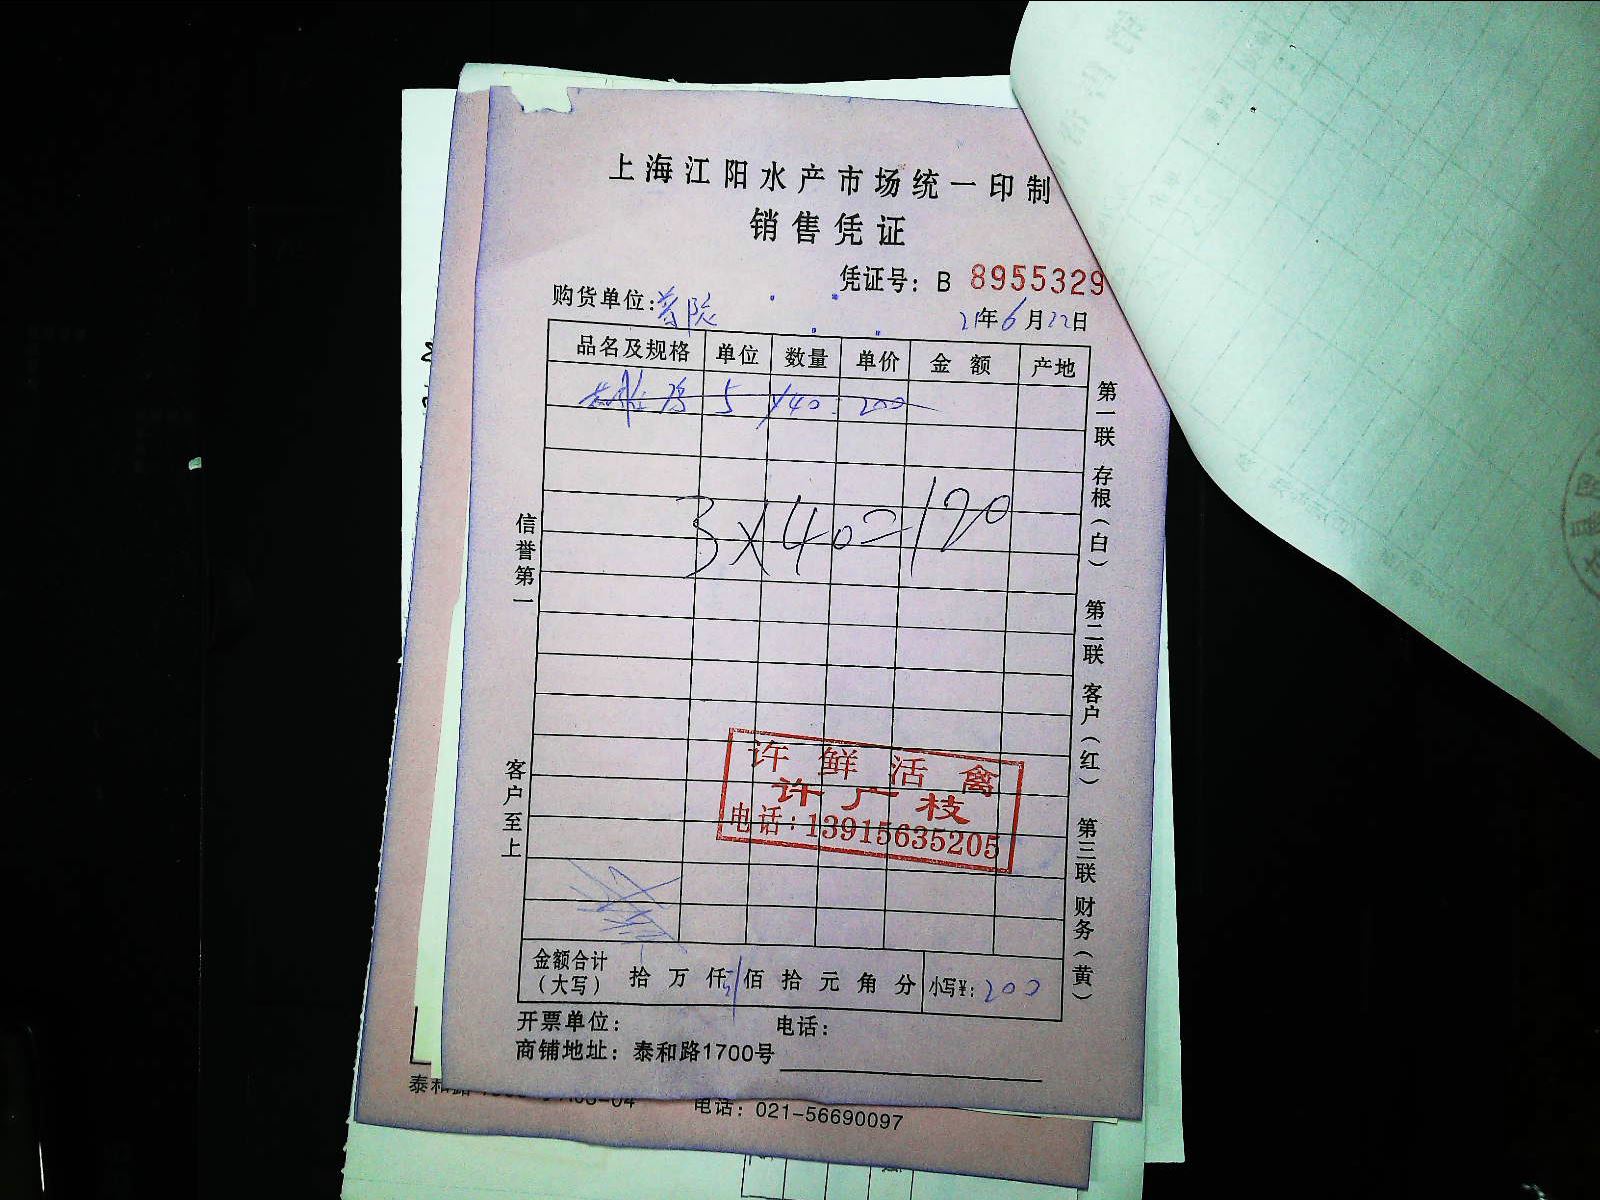 上海江阳水产市场统一印制
销售凭证
凭证号：B 8955329
购货单位：
21年6月22日
品名及规格 单位 数量 单价 金额 产地
5 × 40 200
3×40=120
信誉第一
客户至上
第一联 存根（白） 第二联 客户（红） 第三联 财务（黄）
许鲜活禽
许广枝
电话：13915635205
金额合计（大写） 拾 万 仟 佰 拾 元 角 分 小写¥：200
开票单位： 电话：
商铺地址：泰和路1700号
电话：021-56690097